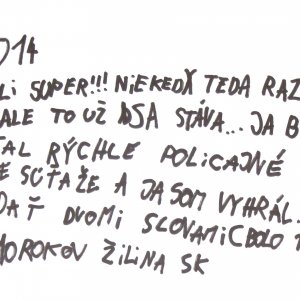 014
LI SUPER!!! NIEKEDY TEDA RAZ
ALE TO UŽ DSA STÁVA... JA B
AL RÝCHLE POLICAJNÉ
E SÚŤAŽE A JA SOM VYHRÁL.
DAŤ DVOMI SLOVAMI BOLO
MOROKOV ŽILINA SK